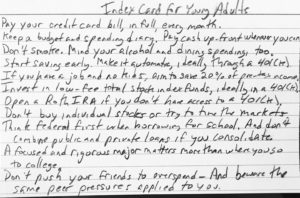 Index Card for Young Adults
Pay your credit card bill, in full, every month.
Keep a budget and spending diary. Pay cash up-front wherever you can.
Don't smoke. Mind your alcohol and dining spending, too.
Start saving early. Make it automatic, ideally through a 401(k).
If you have a job and no kids, aim to save 20% of pre-tax income.
Invest in low-fee total stock index funds, ideally in a 401(k).
Open a Roth IRA if you don't have access to a 401(k).
Don't buy individual stocks or try to time the markets
Think federal first when borrowing for school. And don't
combine public and private loans if you consolidate.
A focused and rigorous major matters more than where you go
to college.
Don't push your friends to overspend - And beware the
same peer pressures applied to you.